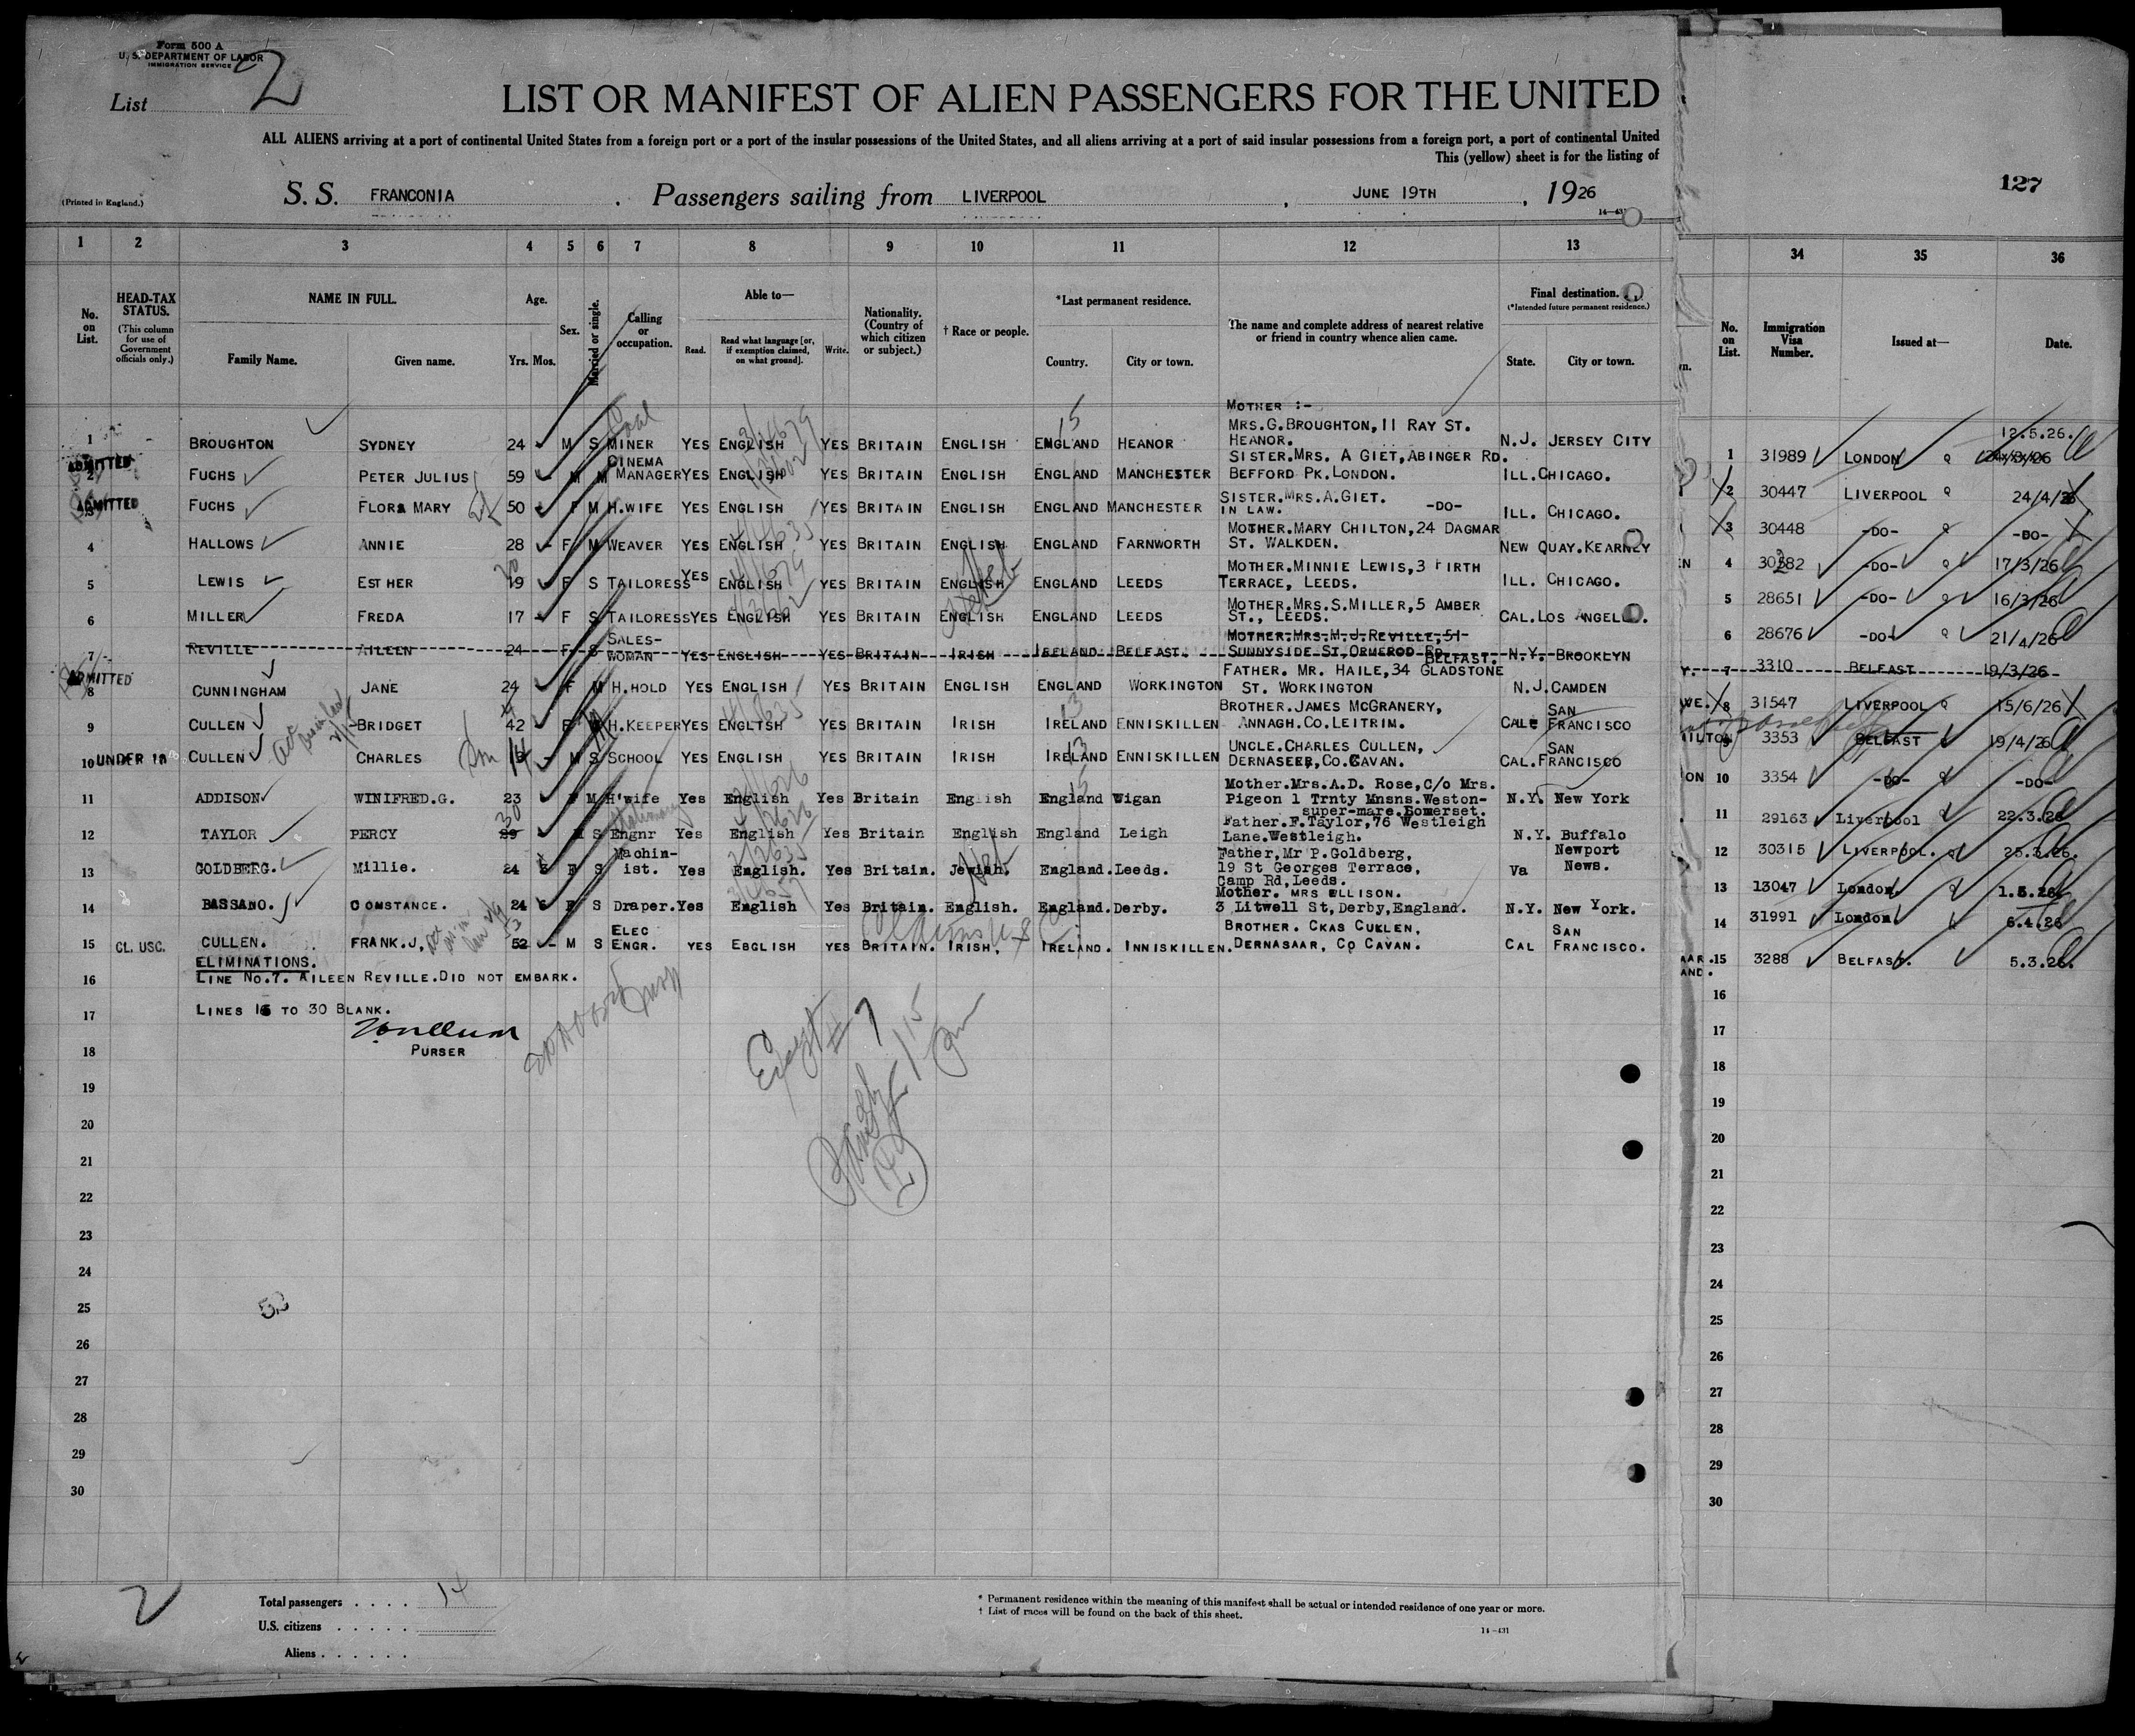 Form 500 A
U. S. DEPARTMENT OF LABOR
IMMIGRATION SERVICE
List 2
LIST OR MANIFEST OF ALIEN PASSENGERS FOR THE UNITED
ALL ALIENS arriving at a port of continental United States from a foreign port or a port of the insular possessions of the United States, and all aliens arriving at a port of said insular possessions from a foreign port, a port of continental United
This (yellow) sheet is for the listing of
127
(Printed in England.)
S. S. FRANCONIA . Passengers sailing from LIVERPOOL , JUNE 19TH , 1926
1 2 3 4 5 6 7 8 9 10 11 12 13 34 35 36
No. on List.
HEAD-TAX STATUS.
(This column for use of Government officials only.)
NAME IN FULL.
Family Name. Given name.
Age.
Yrs. Mos.
Sex.
Married or single.
Calling or occupation.
Able to—
Read. Read what language [or, if exemption claimed, on what ground]. Write.
Nationality. (Country of which citizen or subject.)
† Race or people.
*Last permanent residence.
Country. City or town.
The name and complete address of nearest relative or friend in country whence alien came.
Final destination.
(*Intended future permanent residence.)
State. City or town.
No. on List.
Immigration Visa Number.
Issued at—
Date.
MOTHER :-
MRS.G.BROUGHTON,11 RAY ST.
1 BROUGHTON SYDNEY 24 M S MINER YES ENGLISH YES BRITAIN ENGLISH ENGLAND HEANOR HEANOR. N.J. JERSEY CITY 1 31989 LONDON 12.5.26.
ADMITTED
2 FUCHS PETER JULIUS 59 M M CINEMA MANAGER YES ENGLISH YES BRITAIN ENGLISH ENGLAND MANCHESTER SISTER.MRS. A GIET,ABINGER RD. BEFFORD PK.LONDON. ILL.CHICAGO. 2 30447 LIVERPOOL 24/4/26
ADMITTED
3 FUCHS FLORA MARY 50 F M H.WIFE YES ENGLISH YES BRITAIN ENGLISH ENGLAND MANCHESTER SISTER.MRS.A.GIET. IN LAW. -DO- ILL. CHICAGO. 3 30448 -DO- -DO-
4 HALLOWS ANNIE 28 - F M WEAVER YES ENGLISH YES BRITAIN ENGLISH ENGLAND FARNWORTH MOTHER.MARY CHILTON,24 DAGMAR ST. WALKDEN. NEW QUAY.KEARNEY 4 30282 -DO- 17/3/26
5 LEWIS ESTHER 19 - F S TAILORESS YES ENGLISH YES BRITAIN ENGLISH ENGLAND LEEDS MOTHER.MINNIE LEWIS,3 FIRTH TERRACE, LEEDS. ILL. CHICAGO. 5 28651 -DO- 16/3/26
6 MILLER FREDA 17 - F S TAILORESS YES ENGLISH YES BRITAIN ENGLISH ENGLAND LEEDS MOTHER.MRS.S.MILLER,5 AMBER ST., LEEDS. CAL.LOS ANGEL 6 28676 -DO- 21/4/26
7 REVILLE AILEEN 24 F S SALES-WOMAN YES ENGLISH YES BRITAIN IRISH IRELAND BELFAST. MOTHER.MRS.M.J.REVILLE,51- SUNNYSIDE ST,ORMEROD RD. BELFAST. N.Y. BROOKLYN 7 3310 BELFAST 19/3/26
ADMITTED
8 CUNNINGHAM JANE 24 F M H.HOLD YES ENGLISH YES BRITAIN ENGLISH ENGLAND WORKINGTON FATHER. MR. HAILE,34 GLADSTONE ST. WORKINGTON N.J.CAMDEN 8 31547 LIVERPOOL 15/6/26
9 CULLEN BRIDGET 42 F H.KEEPER YES ENGLISH YES BRITAIN IRISH IRELAND ENNISKILLEN BROTHER.JAMES MCGRANERY, ANNAGH.CO.LEITRIM. CAL SAN FRANCISCO 9 3353 BELFAST 19/4/26
10 UNDER 16 CULLEN CHARLES 14 - M S SCHOOL YES ENGLISH YES BRITAIN IRISH IRELAND ENNISKILLEN UNCLE.CHARLES CULLEN, DERNASEER,CO.CAVAN. CAL.SAN FRANCISCO 10 3354 -DO- -DO-
11 ADDISON WINIFRED.G. 23 F M H'wife Yes English Yes Britain English England Wigan Mother.Mrs.A.D. Rose,C/o Mrs. Pigeon 1 Trnty Mnsns.Weston-super-mare.Somerset. N.Y. New York 11 29163 Liverpool 22.3.26
12 TAYLOR PERCY 29 30 M S Engnr Yes English Yes Britain English England Leigh Father.F.Taylor,76 Westleigh Lane.Westleigh. N.Y. Buffalo 12 30315 LIVERPOOL. 25.3.26.
13 GOLDBERG. Millie. 24 F S Machin-ist. Yes English. Yes Britain. Jewish. England.Leeds. Father,Mr P.Goldberg, 19 St Georges Terrace, Camp Rd,Leeds. Va Newport News. 13 13047 London 1.5.26.
14 BASSANO. CONSTANCE. 24 F S Draper.Yes English Yes Britain. English. England.Derby. Mother. MRS ELLISON. 3 Litwell St,Derby,England. N.Y. New York. 14 31991 London 6.4.26
15 CL. USC. CULLEN. FRANK.J. 52 - M S ELEC ENGR. YES EBGLISH YES BRITAIN. IRISH. IRELAND. INNISKILLEN. BROTHER. CKAS CUKLEN, DERNASAAR, CO CAVAN. CAL SAN FRANCISCO. 15 3288 BELFAST. 5.3.26.
ELIMINATIONS.
16 LINE NO.7. AILEEN REVILLE.DID NOT EMBARK. 16
17 LINES 16 TO 30 BLANK. 17
PURSER
18 18
19 19
20 20
21 21
22 22
23 23
24 24
25 25
26 26
27 27
28 28
29 29
30 30
2
Total passengers . . . . 14
U.S. citizens . . . . .
Aliens . . . . . .
* Permanent residence within the meaning of this manifest shall be actual or intended residence of one year or more.
† List of races will be found on the back of this sheet.
14-431